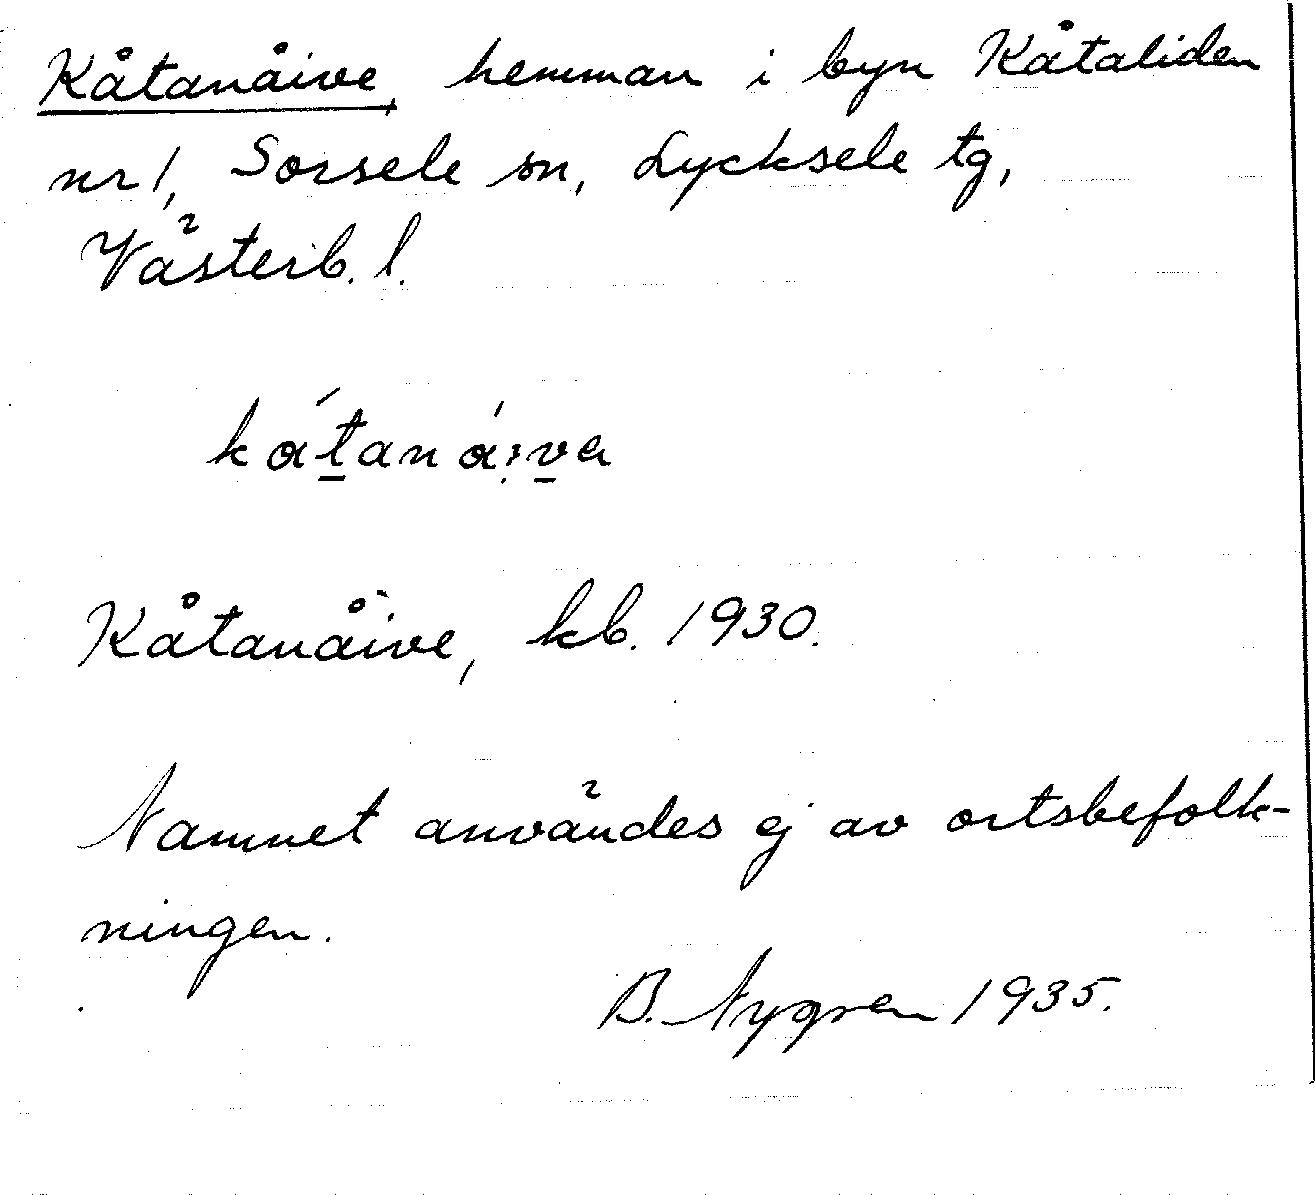 Kåtanåive, hemman i byn Kåtaliden
nr 1, Sorsele sn, Lycksele tg,
Västerb. l.
kátaná:va
Kåtanåive, kb. 1930.
Namnet användes ej av ortsbefolk-
ningen.
B. Nygren 1935.